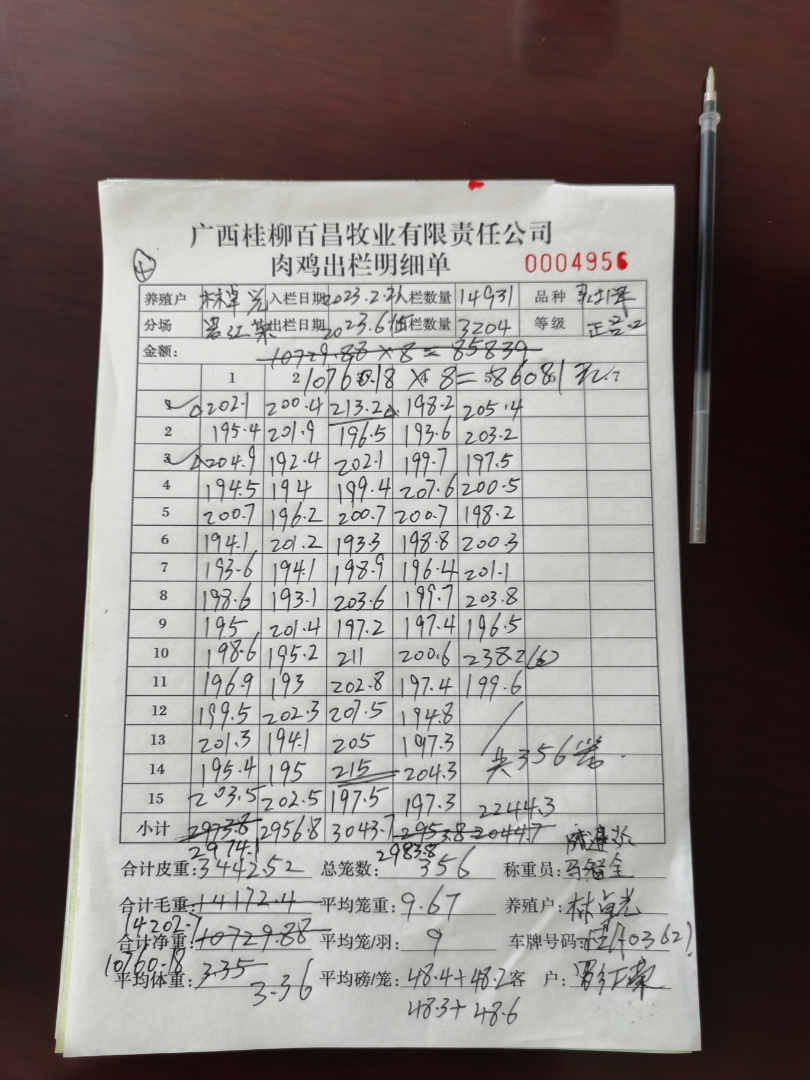 广西桂柳百昌牧业有限责任公司
肉鸡出栏明细单 0004956
养殖户 林卓光 入栏日期 2023.2.21 入栏数量 14931 品种
分场 出栏日期 2023.6.15 出栏数量 3204 等级 正品
金额: 10729.88×8=85839
10760.18×8=86081元
1 2 3 4 5
1 202.1 200.4 213.2 198.2 205.4
2 195.4 201.9 196.5 193.6 203.2
3 204.9 192.4 202.1 199.7 197.5
4 194.5 194 199.4 207.6 200.5
5 200.7 196.2 200.7 200.7 198.2
6 194.1 201.2 193.3 198.8 200.3
7 193.6 194.1 198.9 196.4 201.1
8 198.6 193.1 203.6 199.7 203.8
9 195 201.4 197.2 197.4 196.5
10 198.6 195.2 211 200.6 238.2
11 196.9 193 202.8 197.4 199.6
12 199.5 202.3 207.5 194.8
13 201.3 194.1 205 197.3
14 195.4 195 215 204.3 共356笼.
15 203.5 202.5 197.5 197.3 2244.3
小计 2973.8 2956.8 3043.7 2953.8 2044.7
2974.1 2983.8
合计皮重: 3442.52 总笼数: 356 称重员:
合计毛重: 14172.4 平均笼重: 9.67 养殖户: 林卓光
14202.7
合计净重: 10729.88 平均笼/羽: 9 车牌号码:
10760.18
平均体重: 3.35 平均磅/笼: 48.4+48.2 客 户:
3.36 48.3+48.6